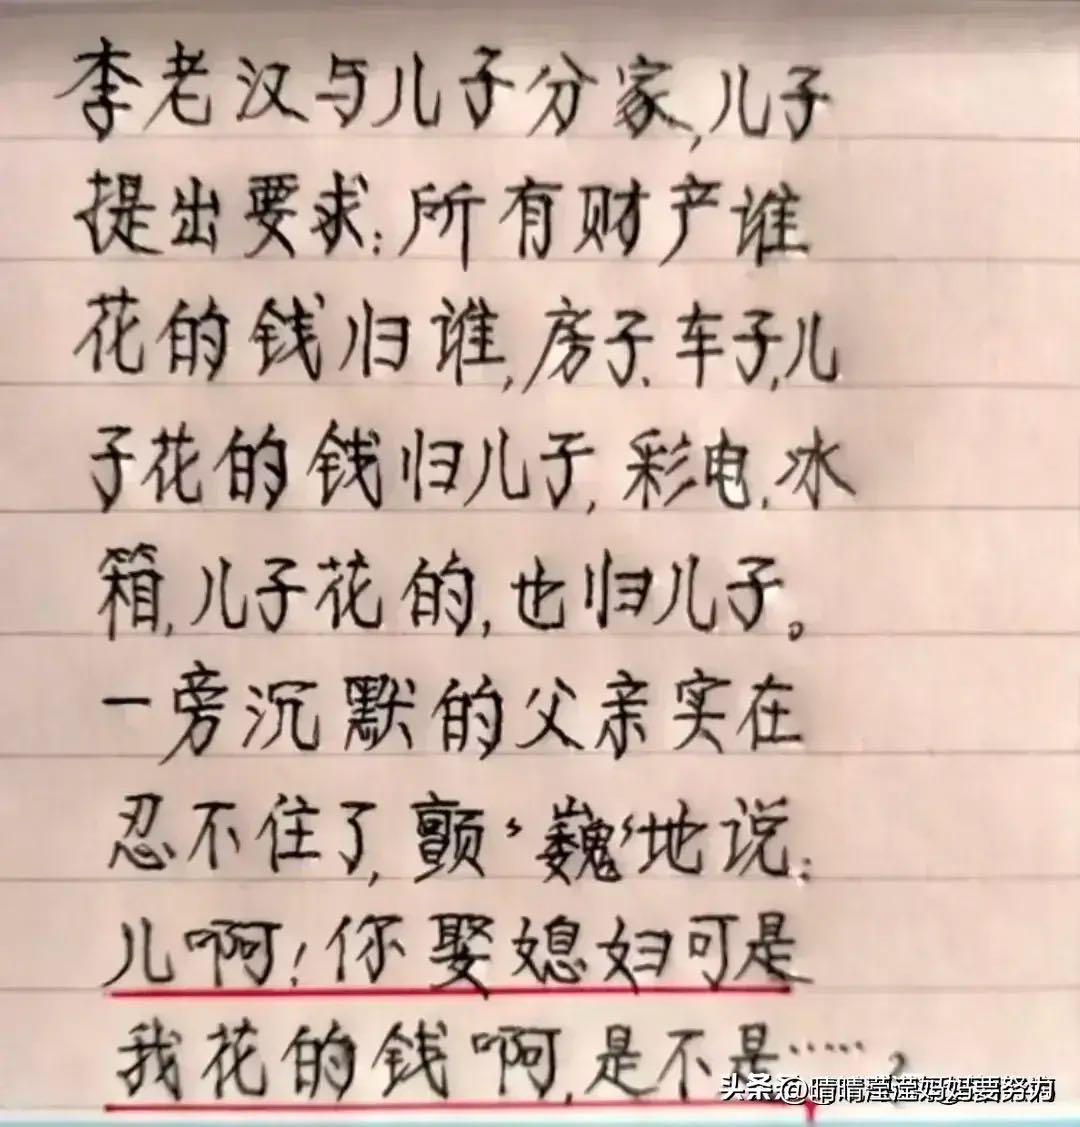 李老汉与儿子分家,儿子
提出要求:所有财产谁
花的钱归谁,房子、车子,儿
子花的钱归儿子,彩电、冰
箱,儿子花的,也归儿子。
一旁沉默的父亲实在
忍不住了,颤巍地说:
儿啊!你娶媳妇可是
我花的钱啊,是不是……?
头条@晴晴滢滢妈妈要努力